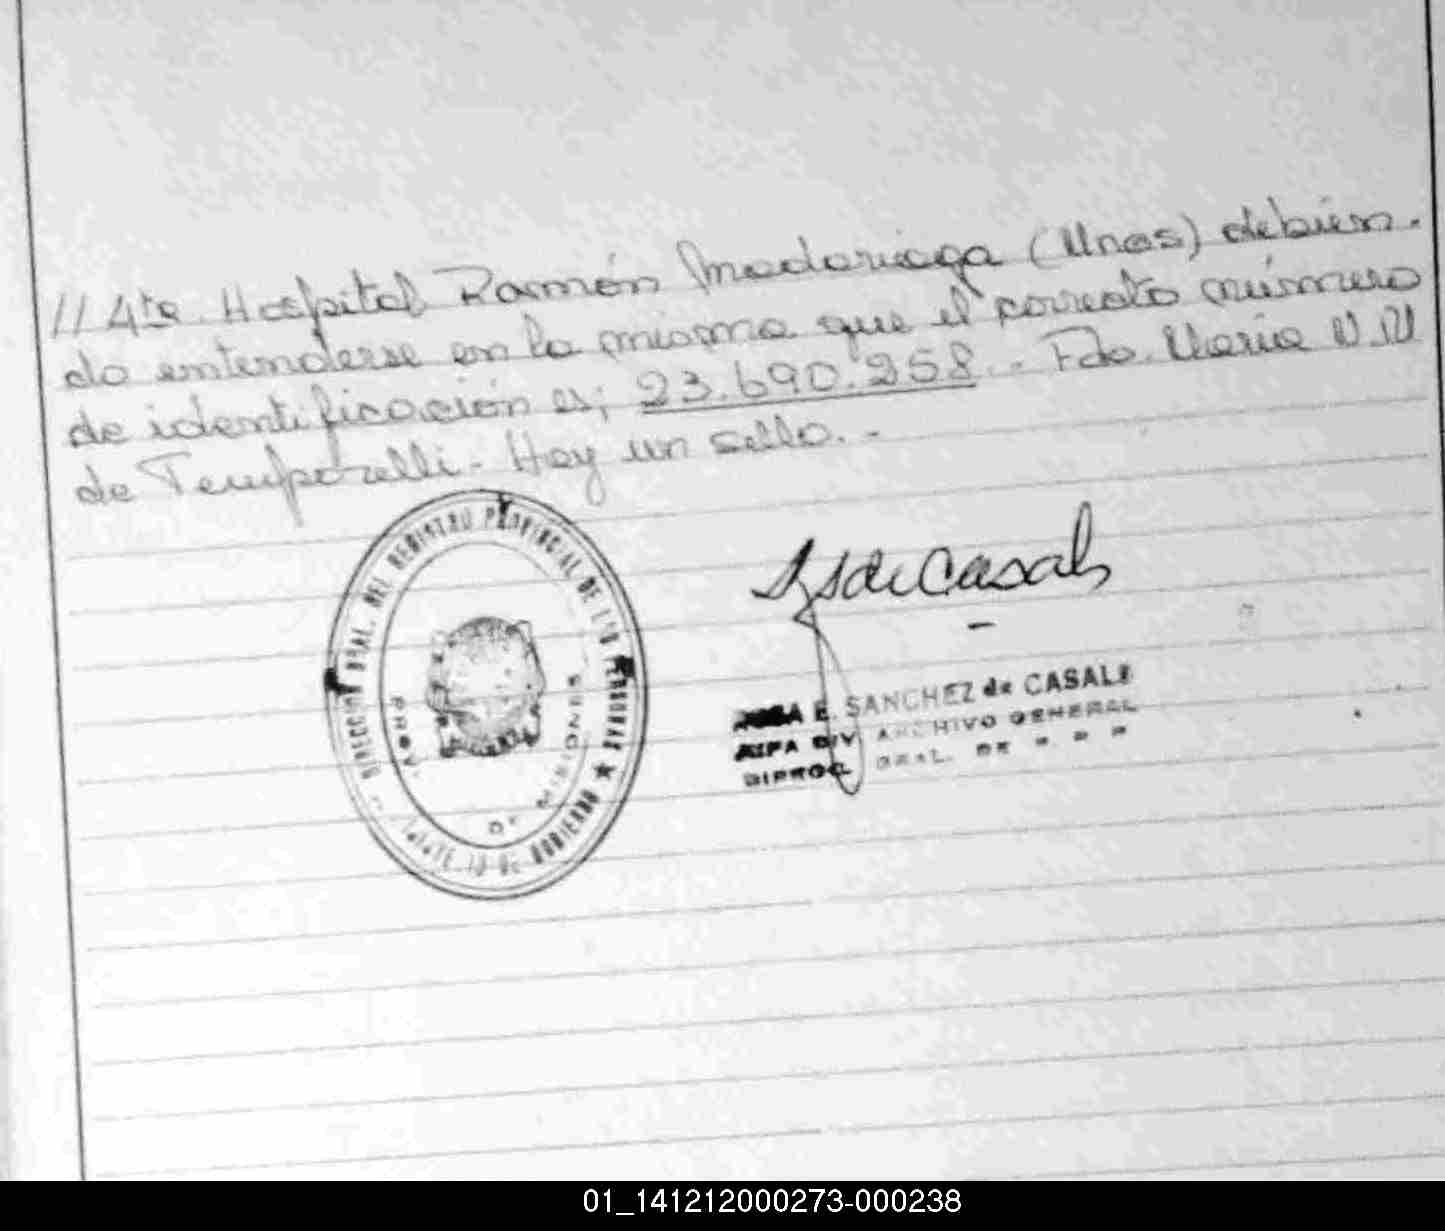 // 4ta. Hospital Ramón Madariaga (Mnes) debien-
do entenderse en la misma que el correcto número
de identificación es; 23.690.258.- Fdo. María N.N
de Temporelli.- Hay un sello.-
DIRECCION GRAL. DEL REGISTRO PROVINCIAL DE LAS PERSONAS
DE GOBIERNO
PROV. DE MISIONES
de Casals
E. SANCHEZ de CASALS
JEFA DIV ARCHIVO GENERAL
GRAL. DE R. P. P
01_141212000273-000238